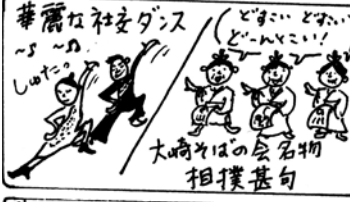 華麗な社交ダンス
しゅたっ
どすこい どすこい
ど〜んとこい!
大崎そばの会名物
相撲甚句